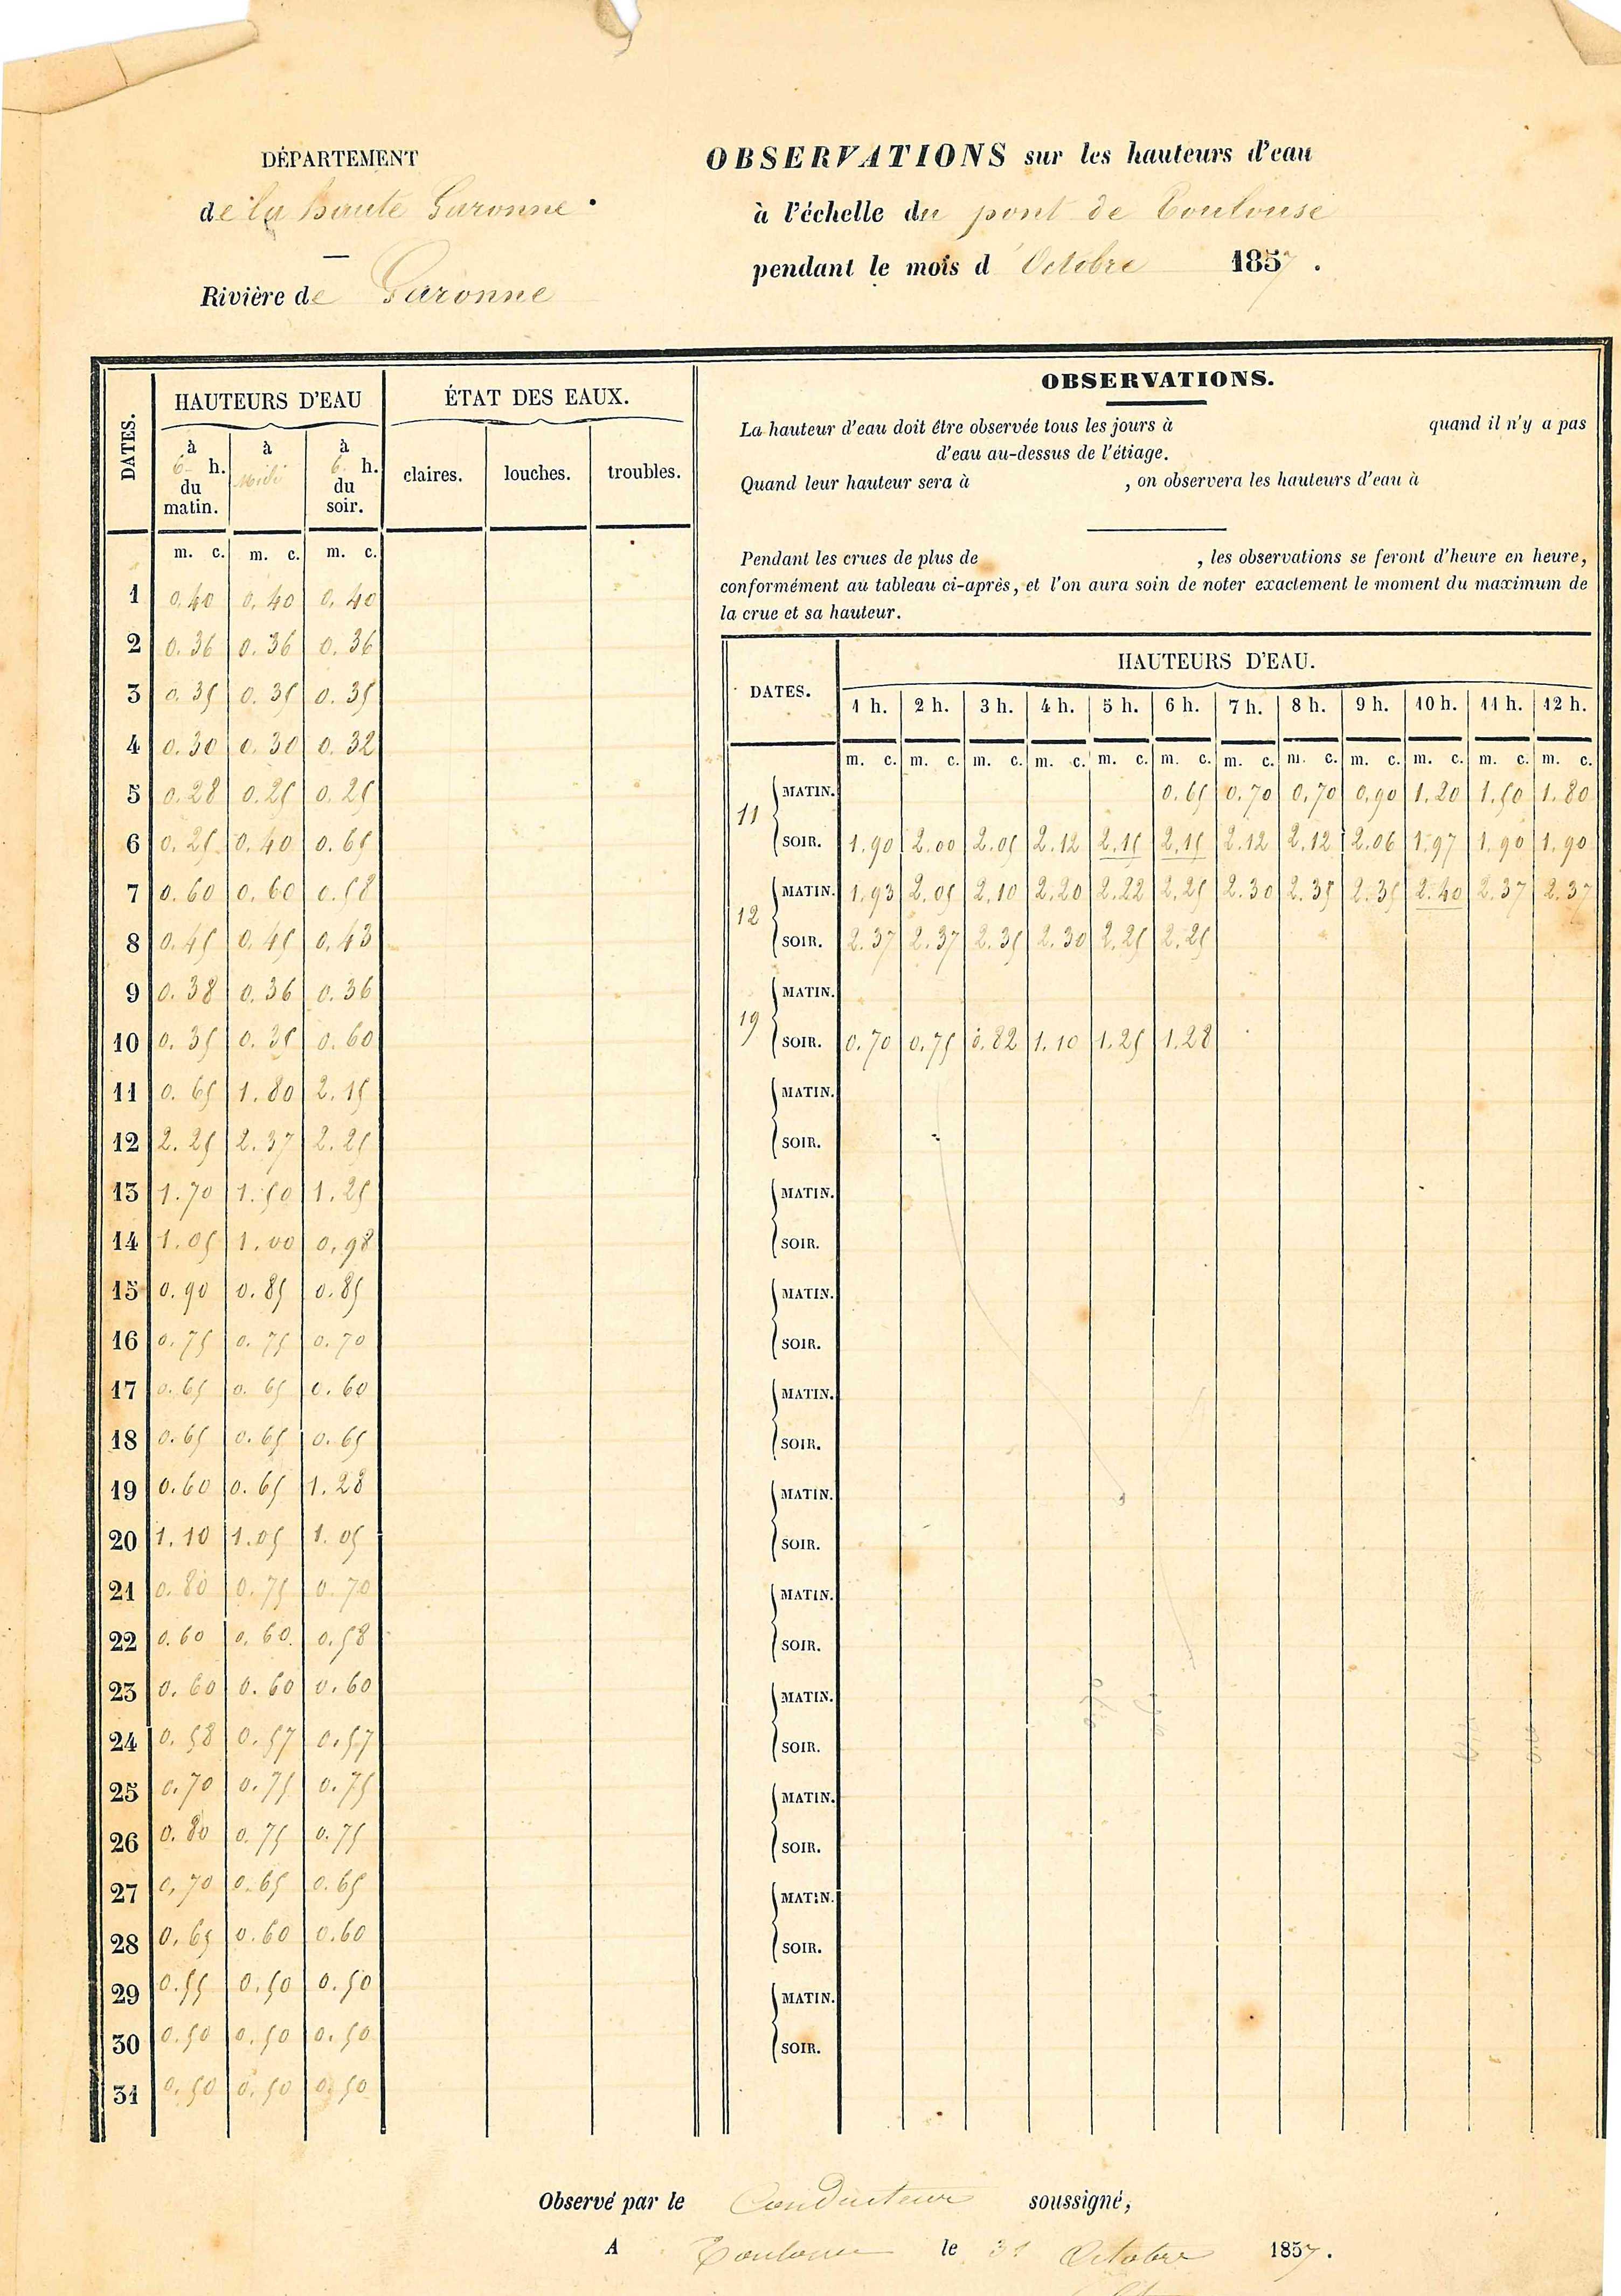 DÉPARTEMENT
de la haute Garonne.
Rivière de Garonne
OBSERVATIONS sur les hauteurs d'eau
à l'échelle du pont de Toulouse
pendant le mois d'Octobre 1857.
DATES.
HAUTEURS D'EAU
ÉTAT DES EAUX.
à 6 h. du matin.
à Midi
à 6 h. du soir.
claires. louches. troubles.
m. c. m. c. m. c.
1 0.40 0.40 0.40
2 0.36 0.36 0.36
3 0.35 0.35 0.35
4 0.30 0.30 0.32
5 0.28 0.25 0.25
6 0.25 0.40 0.65
7 0.60 0.60 0.58
8 0.45 0.45 0.43
9 0.38 0.36 0.36
10 0.35 0.35 0.60
11 0.65 1.80 2.15
12 2.25 2.37 2.25
13 1.70 1.50 1.25
14 1.05 1.00 0.98
15 0.90 0.85 0.85
16 0.75 0.75 0.70
17 0.65 0.65 0.60
18 0.65 0.65 0.65
19 0.60 0.65 1.28
20 1.10 1.05 1.05
21 0.80 0.75 0.70
22 0.60 0.60 0.58
23 0.60 0.60 0.60
24 0.58 0.57 0.57
25 0.70 0.75 0.75
26 0.80 0.75 0.75
27 0.70 0.65 0.65
28 0.65 0.60 0.60
29 0.55 0.50 0.50
30 0.50 0.50 0.50
31 0.50 0.50 0.50
OBSERVATIONS.
La hauteur d'eau doit être observée tous les jours à quand il n'y a pas
d'eau au-dessus de l'étiage.
Quand leur hauteur sera à , on observera les hauteurs d'eau à
Pendant les crues de plus de , les observations se feront d'heure en heure,
conformément au tableau ci-après, et l'on aura soin de noter exactement le moment du maximum de
la crue et sa hauteur.
DATES.
HAUTEURS D'EAU.
1 h. 2 h. 3 h. 4 h. 5 h. 6 h. 7 h. 8 h. 9 h. 10 h. 11 h. 12 h.
m. c. m. c. m. c. m. c. m. c. m. c. m. c. m. c. m. c. m. c. m. c. m. c.
11 MATIN. 0.65 0.70 0.70 0.90 1.20 1.50 1.80
SOIR. 1.90 2.00 2.05 2.12 2.15 2.15 2.12 2.12 2.06 1.97 1.90 1.90
12 MATIN. 1.93 2.05 2.10 2.20 2.22 2.25 2.30 2.35 2.35 2.40 2.37 2.37
SOIR. 2.37 2.37 2.35 2.30 2.25 2.25
19 MATIN.
SOIR. 0.70 0.75 0.82 1.10 1.25 1.28
MATIN.
SOIR.
MATIN.
SOIR.
MATIN.
SOIR.
MATIN.
SOIR.
MATIN.
SOIR.
MATIN.
SOIR.
MATIN.
SOIR.
MATIN.
SOIR.
MATIN.
SOIR.
MATIN.
SOIR.
Observé par le Conducteur soussigné,
A Toulouse le 31 Octobre 1857.